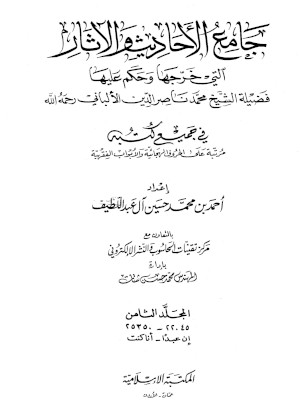 جامع الأحاديث والآثار
التي خرجها وحكم عليها
فضيلة الشيخ محمد ناصر الدين الألباني رحمه الله
في جميع كتبه
مرتبة على الحروف الهجائية والأبواب الفقهية
إعداد
أحمد بن محمد حسين آل عبد اللطيف
بالتعاون مع
مركز تقنيات الحاسوب والنشر الإلكتروني
بإدارة
المهندس محمد حسين
المجلد الثامن
٢٢٠٤٥ - ٢٥٣٥٠
إن عبدًا - أنا كنت
المكتبة الإسلامية
عمان - الأردن